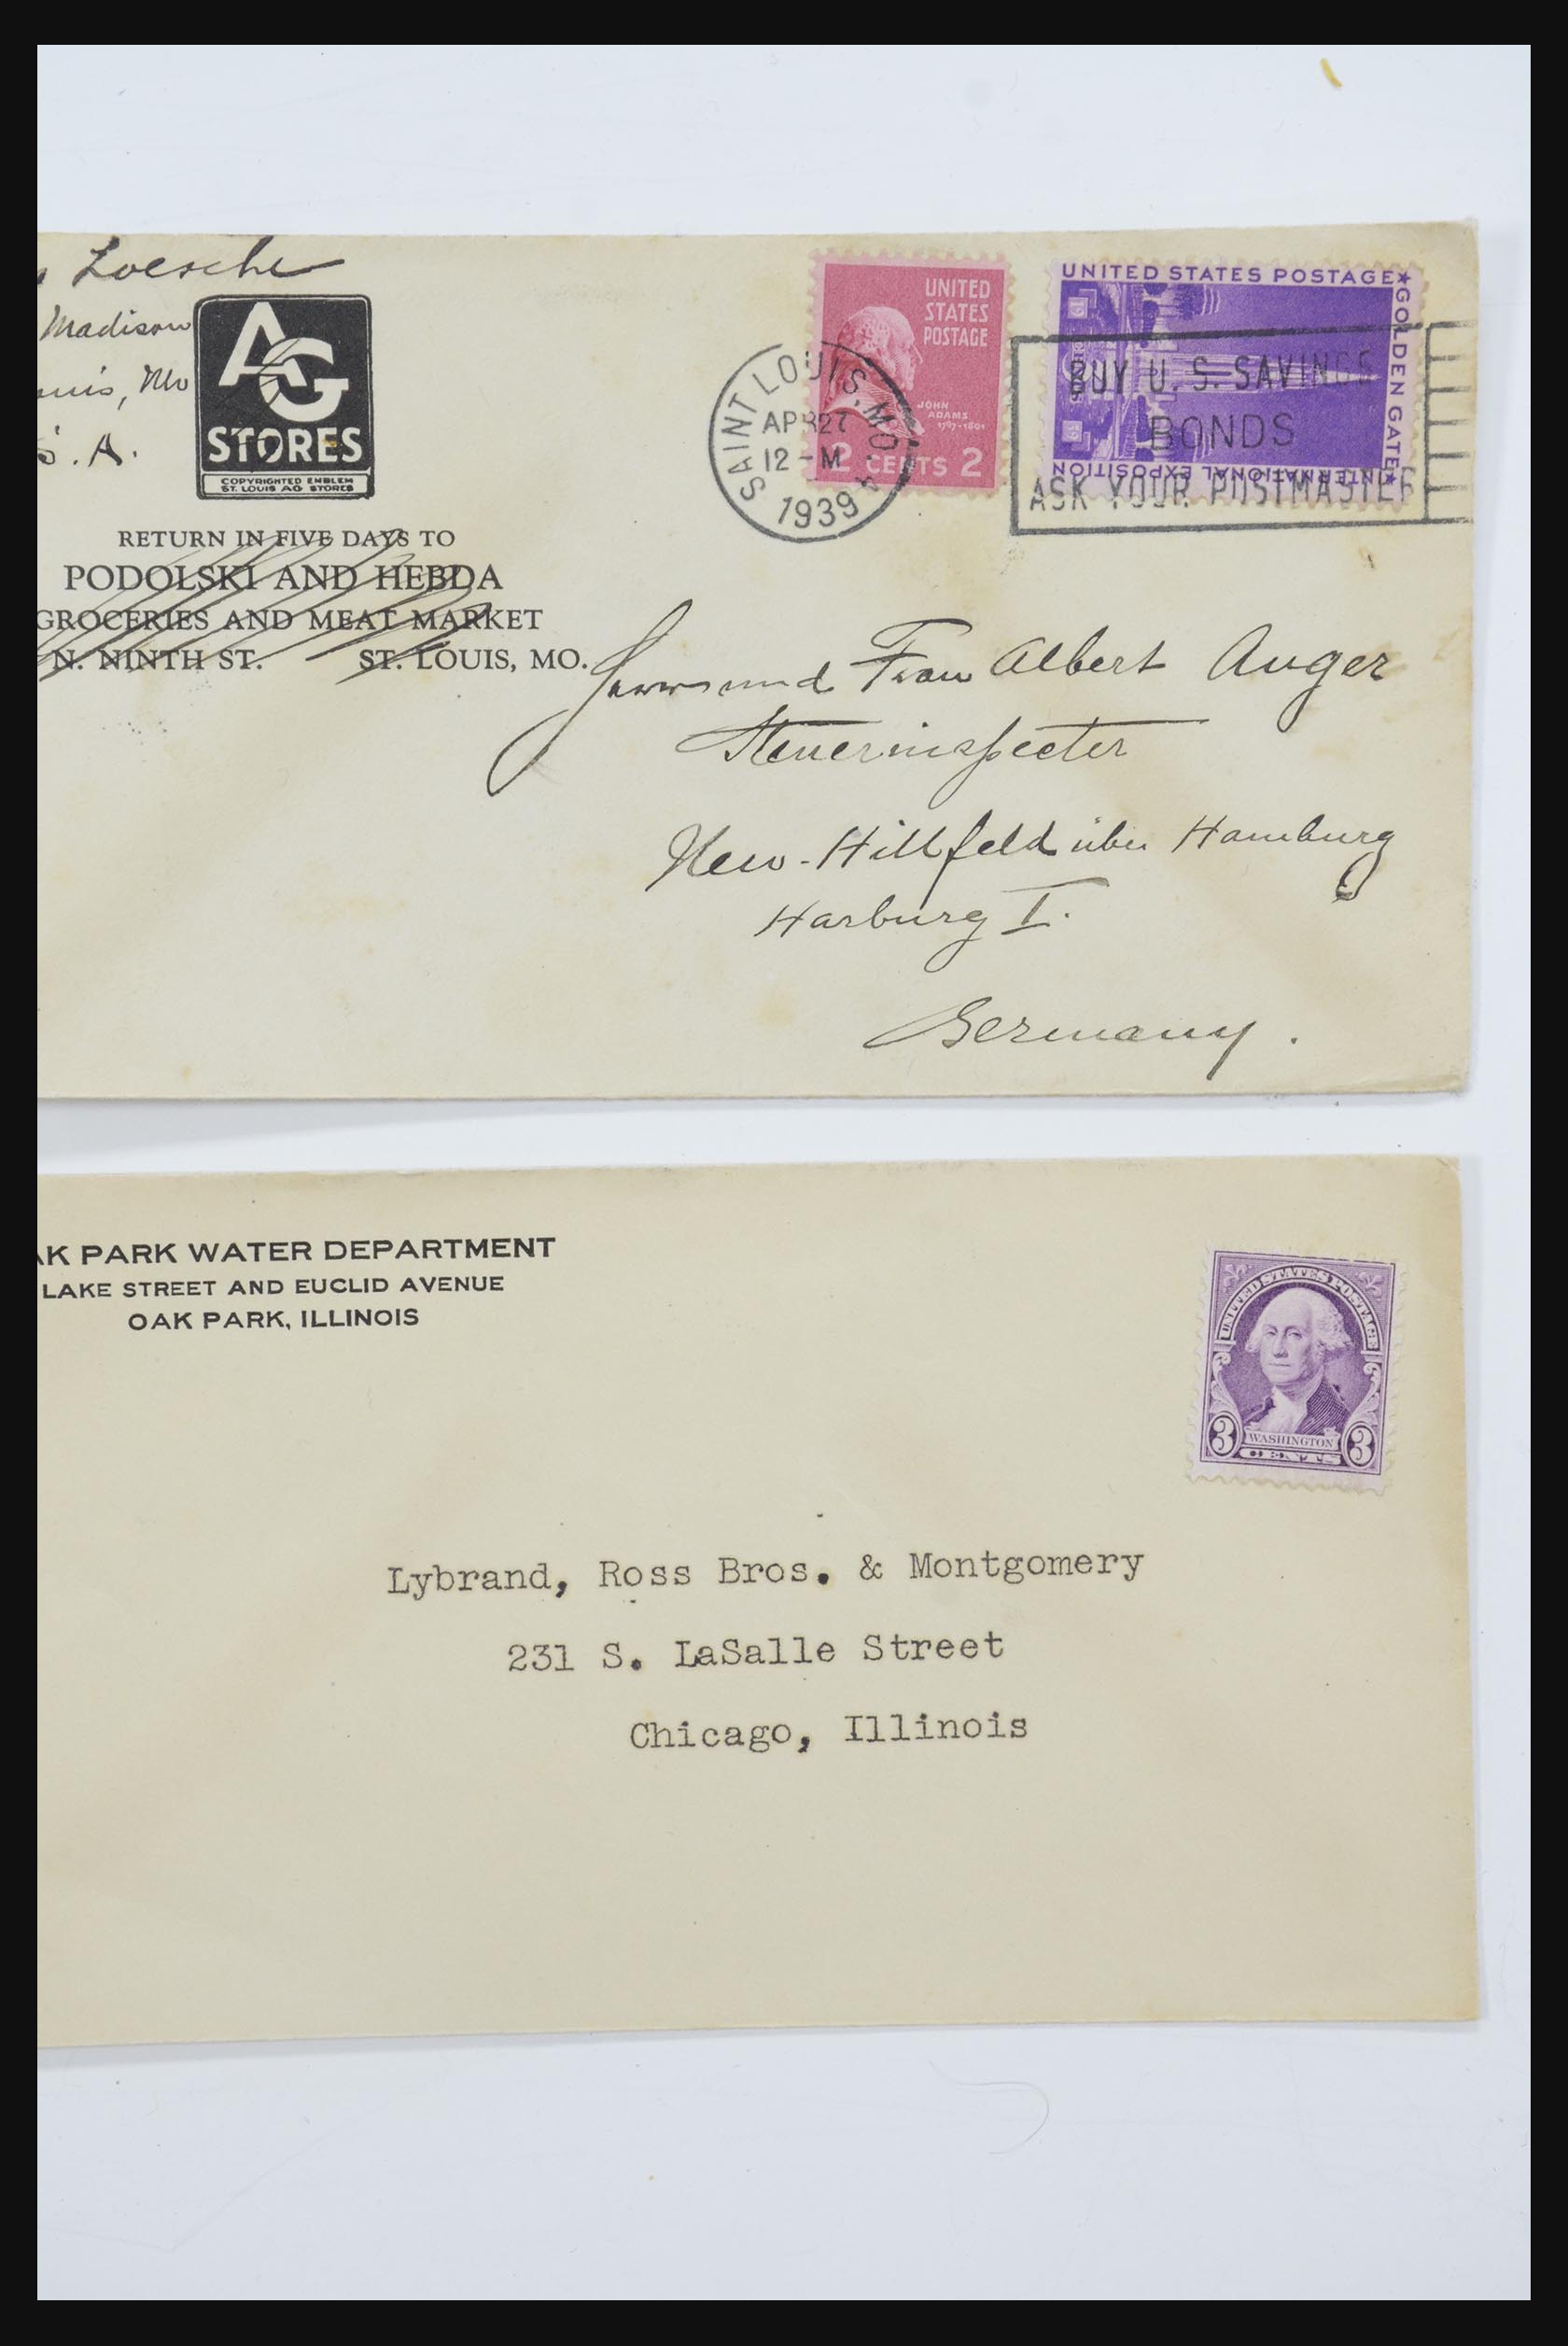 Loesche
Madison
Mo
S. A.
AG
STORES
COPYRIGHTED EMBLEM
ST. LOUIS AG STORES
RETURN IN FIVE DAYS TO
PODOLSKI AND HEBDA
GROCERIES AND MEAT MARKET
N. NINTH ST. ST. LOUIS, MO.
UNITED
STATES
POSTAGE
JOHN
ADAMS
1797-1801
2 CENTS 2
SAINT LOUIS, MO. 4
APR 27
12 - M
1939
UNITED STATES POSTAGE
GOLDEN GATE
INTERNATIONAL EXPOSITION
BUY U. S. SAVINGS
BONDS
ASK YOUR POSTMASTER
und Frau Albert Auger
Steuerinspecter
New-Hillfeld über Hamburg
Harburg I.
Germany.
AK PARK WATER DEPARTMENT
LAKE STREET AND EUCLID AVENUE
OAK PARK, ILLINOIS
UNITED STATES POSTAGE
3 WASHINGTON 3
CENTS
Lybrand, Ross Bros. & Montgomery
231 S. LaSalle Street
Chicago, Illinois